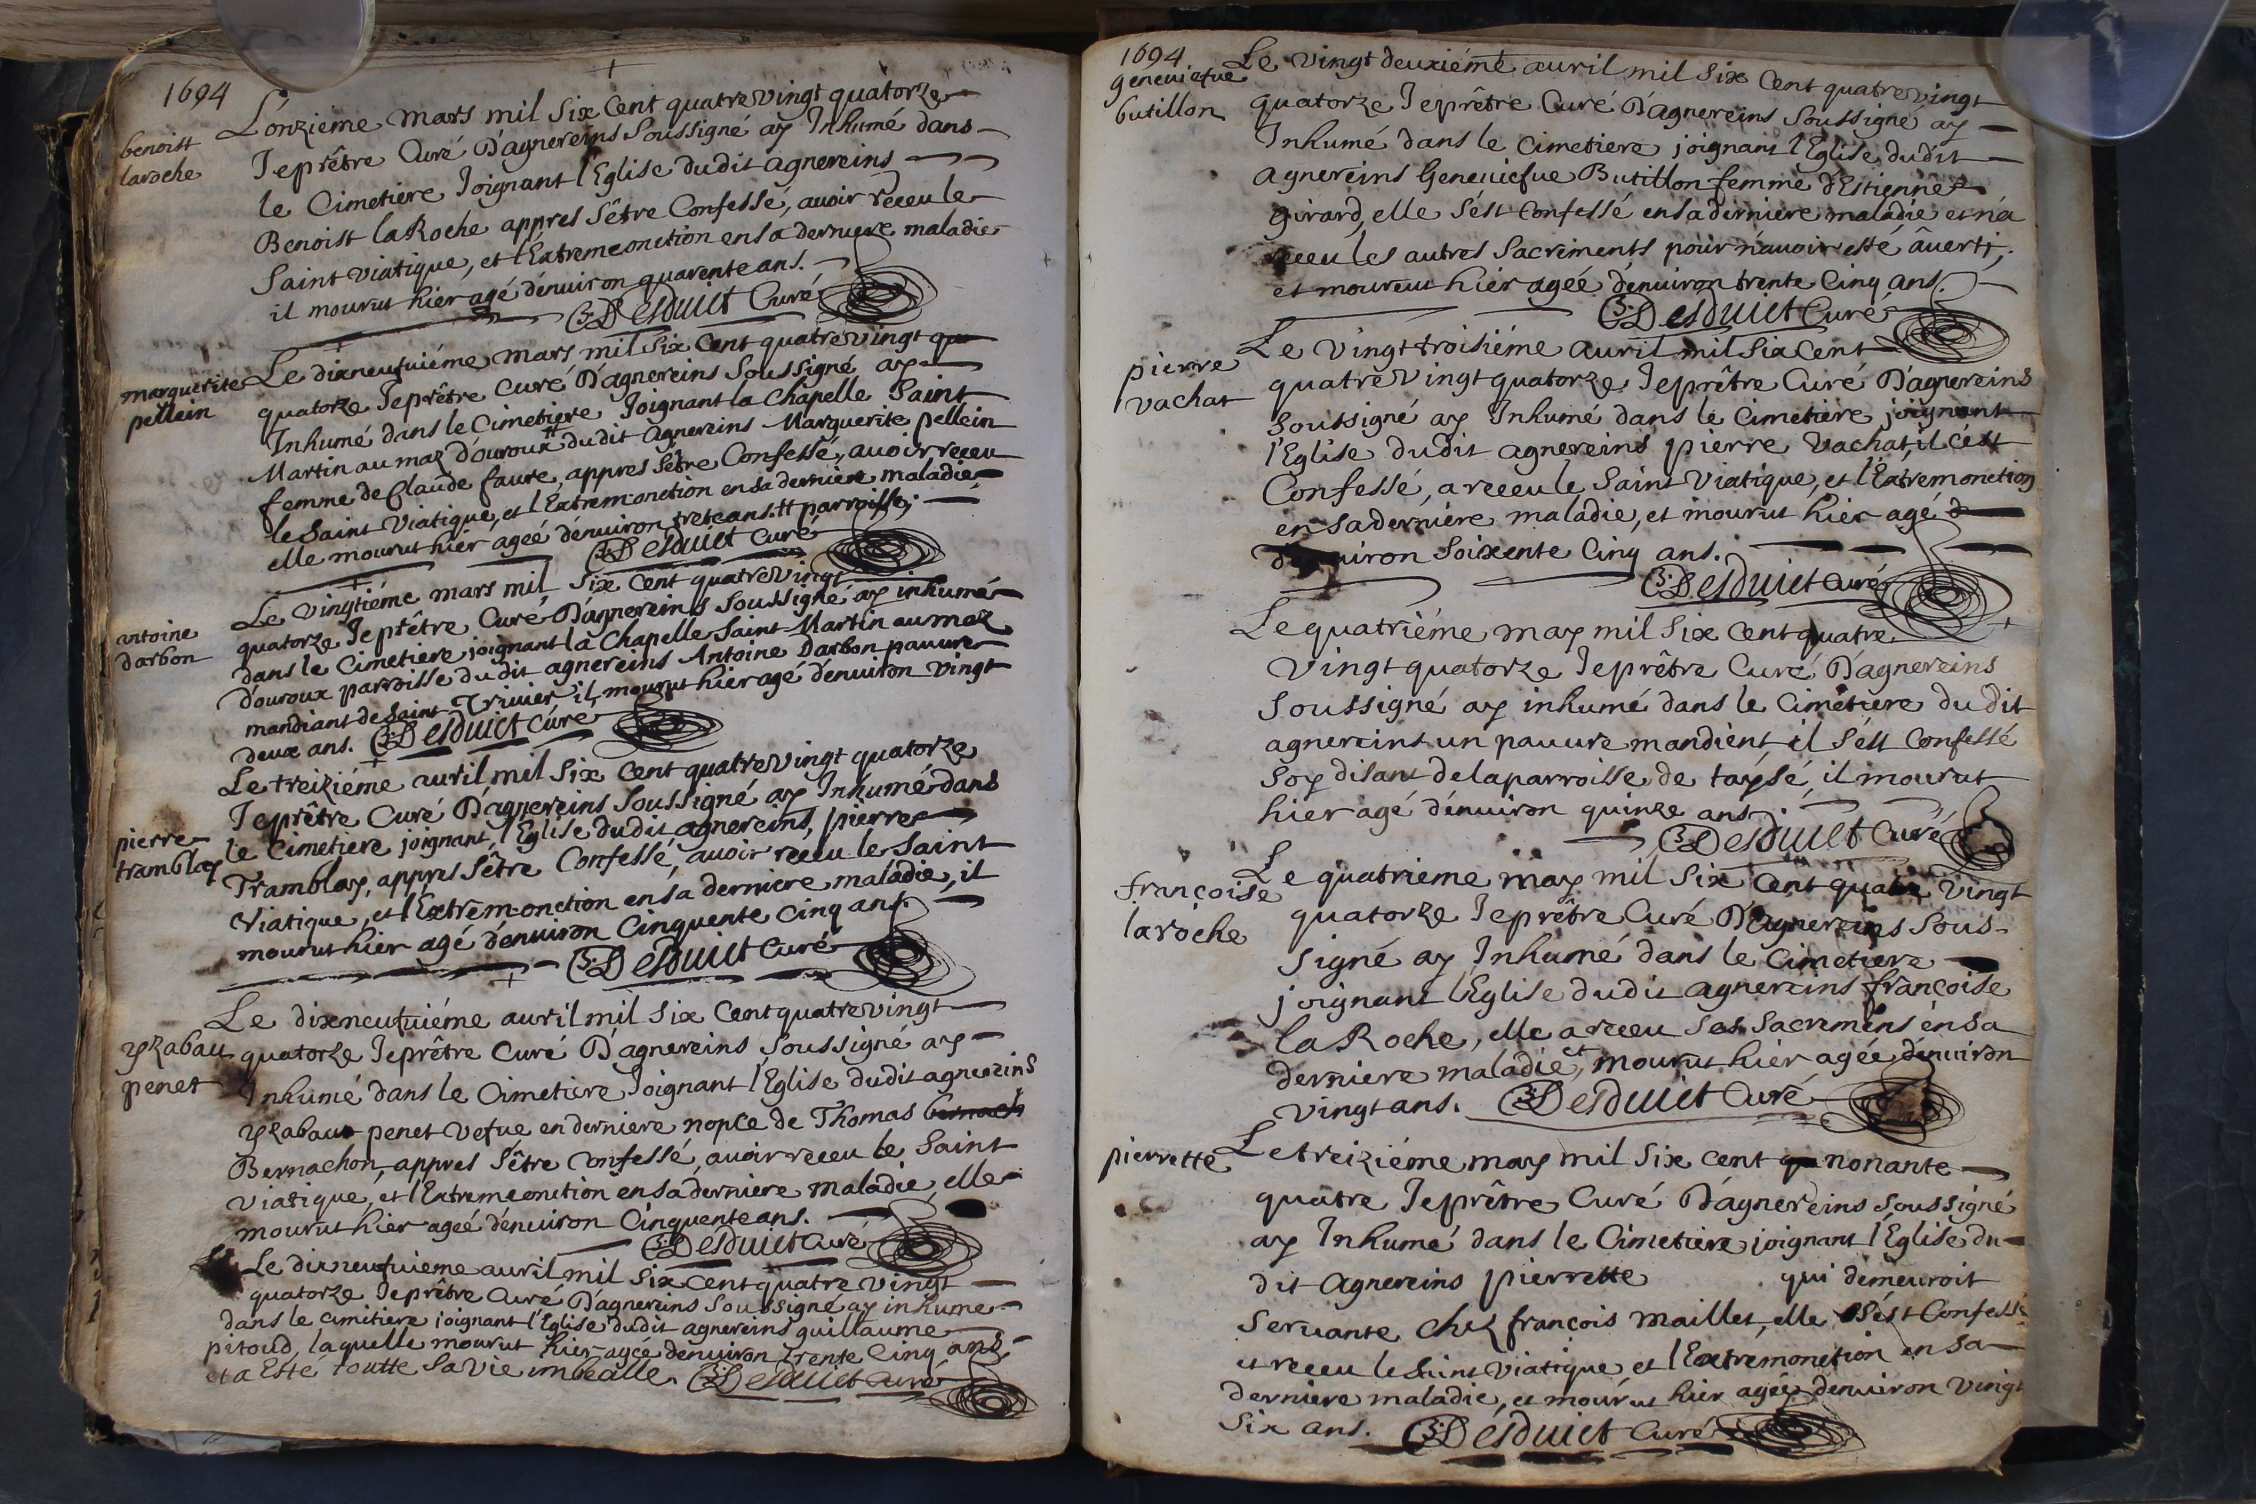 1694
L'onzieme mars mil Six Cent quatre vingt quatorze
benoist
laroche
Je prêtre Curé D'agnereins Soussigné ay Inhumé dans
le Cimetiere Joignant l'Eglise dudit agnereins
Benoist la Roche appres S'être Confessé, avoir receu le
Saint viatique, et l'Extremeonction en sa derniere maladie
il mourut hier agé d'enuiron quarente ans.
Desduiet Curé
marguerite
pellein
Le dixneufuiéme mars mil Six Cent quatre vingt qu
quatorze Je prêtre Curé D'agnereins Soussigné ay
Inhumé dans le Cimetiere Joignant la Chapelle Saint
Martin au maz d'ouroux # dudit Agnereins Marguerite pellein
femme de Claude faure, appres Sêtre Confessé, auoir receu
le Saint Viatique, et l'Extremonction en sa derniere maladie,
elle mourut hier ageé dénuiron trete ans. # parroisse;
Desduiet Curé
antoine
darbon
Le vingtiéme mars mil Six Cent quatre vingt
quatorze Je prêtre Curé D'agnereins Soussigné ay inhumé
dans le Cimetiere joignant la Chapelle Saint Martin au maz
d'ouroux parroisse du dit agnereins Antoine Darbon pauure
mandiant de Saint Triuier il mourut hier agé dénuiron vingt
deux ans. Desduiet Curé
pierre
tramblay
Le treiziéme auril mil Six Cent quatre vingt quatorze
Je prêtre Curé D'agnereins Soussigné ay Inhumé dans
le Cimetiere joignant l'Eglise dudit agnereins, pierre
Tramblay, appres Sêtre Confessé, auoir receu le Saint
Viatique, et l'Extrem-onction en sa derniere maladie, il
mourut hier agé dénuiron Cinquente Cinq ans.
Desduiet Curé
yzabau
penet
Le dixneufuiéme auril mil Six Cent quatre vingt
quatorze Je prêtre Curé D'agnereins Soussigné ay
Inhumé dans le Cimetiere Joignant l'Eglise dudit agnereins
yzabau penet Vefue en derniere nopce de Thomas bernach
Bernachon, appres S'être Confessé, auoir receu le Saint
Viatique, et l'Extremeonction en sa derniere maladie, elle
mourut hier ageé dénuiron Cinquente ans.
Desduiet Curé
Le dixneufuieme auril mil Six Cent quatre vingt
quatorze Je prêtre Curé D'agnereins Soussigné ay inhumé
dans le Cimitiere joignant l'Eglise dudit agnereins guillaume
pitoud, laquelle mourut hier agée denuiron trente Cinq ans,
et a Esté toutte Sa vie imbealle. Desduiet Curé
1694
geneuiefue
butillon
Le vingt deuxiéme auril mil Six Cent quatre vingt
quatorze Je prêtre Curé D'agnereins Soussigné ay
Inhumé dans le Cimetiere joignant l'Eglise dudit
agnereins Geneuiefue Butillon femme d'Estienne
Girard, elle S'ést Confessé en sa derniere maladie et n'a
receu les autres Sacrements pour n'auoir esté âuerti;
et moureut hier ageé dénuiron trente Cinq ans.
Desduiet Curé
pierre
vachat
Le vingt troisiéme auril mil Six Cent
quatre vingt quatorze Je prêtre Curé D'agnereins
Soussigné ay Inhumé dans le Cimetiere joignant
l'Eglise dudit agnereins pierre Vachat, il c'est
Confessé, a receu le Saint Viatique, et l'Extremonction
en sa derniere maladie, et mourut hier agé d
dénuiron Soixente Cinq ans.
Desduiet Curé
Le quatriéme may mil Six Cent quatre
Vingt quatorze Je prêtre Curé D'agnereins
Soussigné ay inhumé dans le Cimétiere dudit
agnereins un pauure mandient il S'ést Confessé
Soy disant de la parroisse de taysé, il mourut
hier agé dénuiron quinze ans.
Desduiet Curé
françoise
laroche
Le quatrieme may mil Six Cent quatre Vingt
quatorze Je prêtre Curé D'agnereins Sous-
signé ay Inhumé dans le Cimetiere
joignant l'Eglise dudit agnereins françoise
la Roche, elle a receu Ses Sacremens en sa
derniere maladie, et mourut hier agée dénuiron
vingt ans. Desduiet Curé
pierrette
Le treiziéme may mil Six Cent qu nonante
quatre Je prêtre Curé D'agnereins Soussigné
ay Inhumé dans le Cimetiere joignant l'Eglise du-
dit Agnereins pierrette qui demeuroit
Seruante Chez françois Maillet, elle S'ést Confessé
et receu le Saint Viatique et l'Extremonction en sa
derniere maladie, et mourut hier agée dénuiron vingt
Six ans. Desduiet Curé